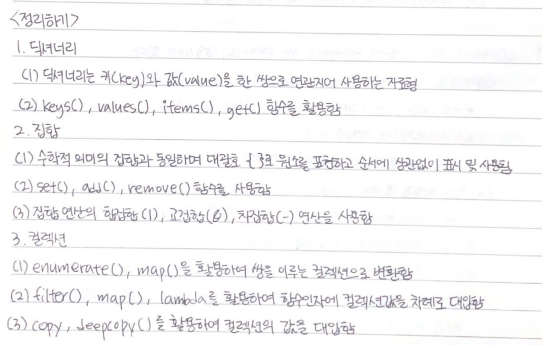 <정리하기>
1. 딕셔너리
(1) 딕셔너리는 키(key)와 값(value)을 한 쌍으로 연관지어 사용하는 자료형
(2) keys(), values(), items(), get() 함수를 활용함
2. 집합
(1) 수학적 의미의 집합과 동일하며 대괄호 { }로 원소를 표현하고 순서에 상관없이 표시 및 사용함
(2) set(), add(), remove() 함수를 사용함
(3) 집합 연산의 합집합(|), 교집합(&), 차집합(-) 연산을 사용함
3. 컬렉션
(1) enumerate(), map()을 활용하여 쌍을 이루는 컬렉션으로 변환함
(2) filter(), map(), lambda를 활용하여 함수인자에 컬렉션값을 차례로 대입함
(3) copy, deepcopy()를 활용하여 컬렉션의 값을 대입함